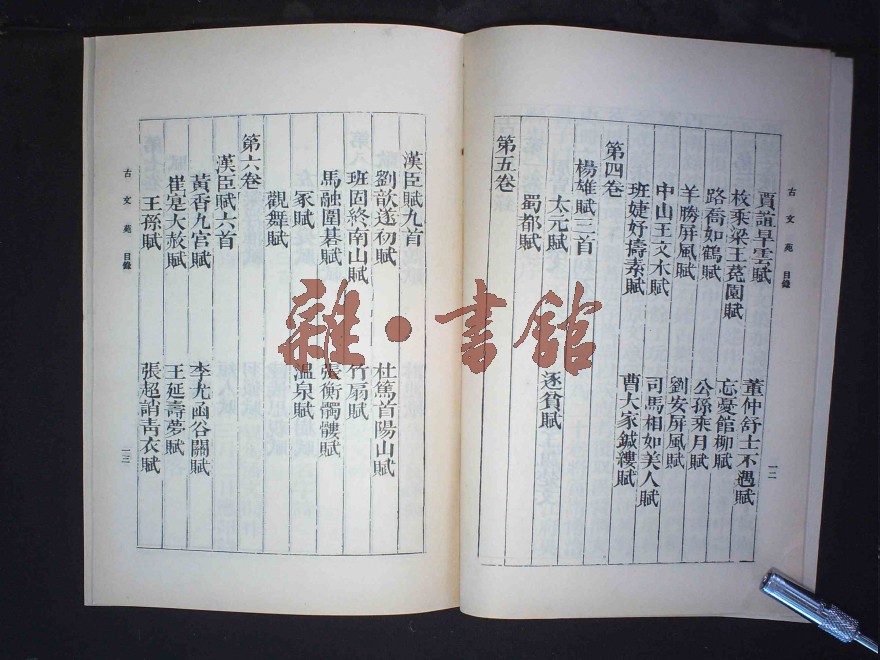 古文苑 目錄
一二
賈誼旱雲賦 董仲舒士不遇賦
枚乘梁王菟園賦 忘憂館柳賦
路喬如鶴賦 公孫乘月賦
羊勝屏風賦 劉安屏風賦
中山王文木賦 司馬相如美人賦
班婕妤擣素賦 曹大家鍼縷賦
第四卷
楊雄賦三首
太元賦 逐貧賦
蜀都賦
第五卷
漢臣賦九首
劉歆遂初賦 杜篤首陽山賦
班固終南山賦 竹扇賦
馬融圍碁賦 張衡髑髏賦
冢賦 溫泉賦
觀舞賦
第六卷
漢臣賦六首
黃香九宮賦 李尤函谷關賦
崔寔大赦賦 王延壽夢賦
王孫賦 張超誚青衣賦
古文苑 目錄
一三
雜·書館